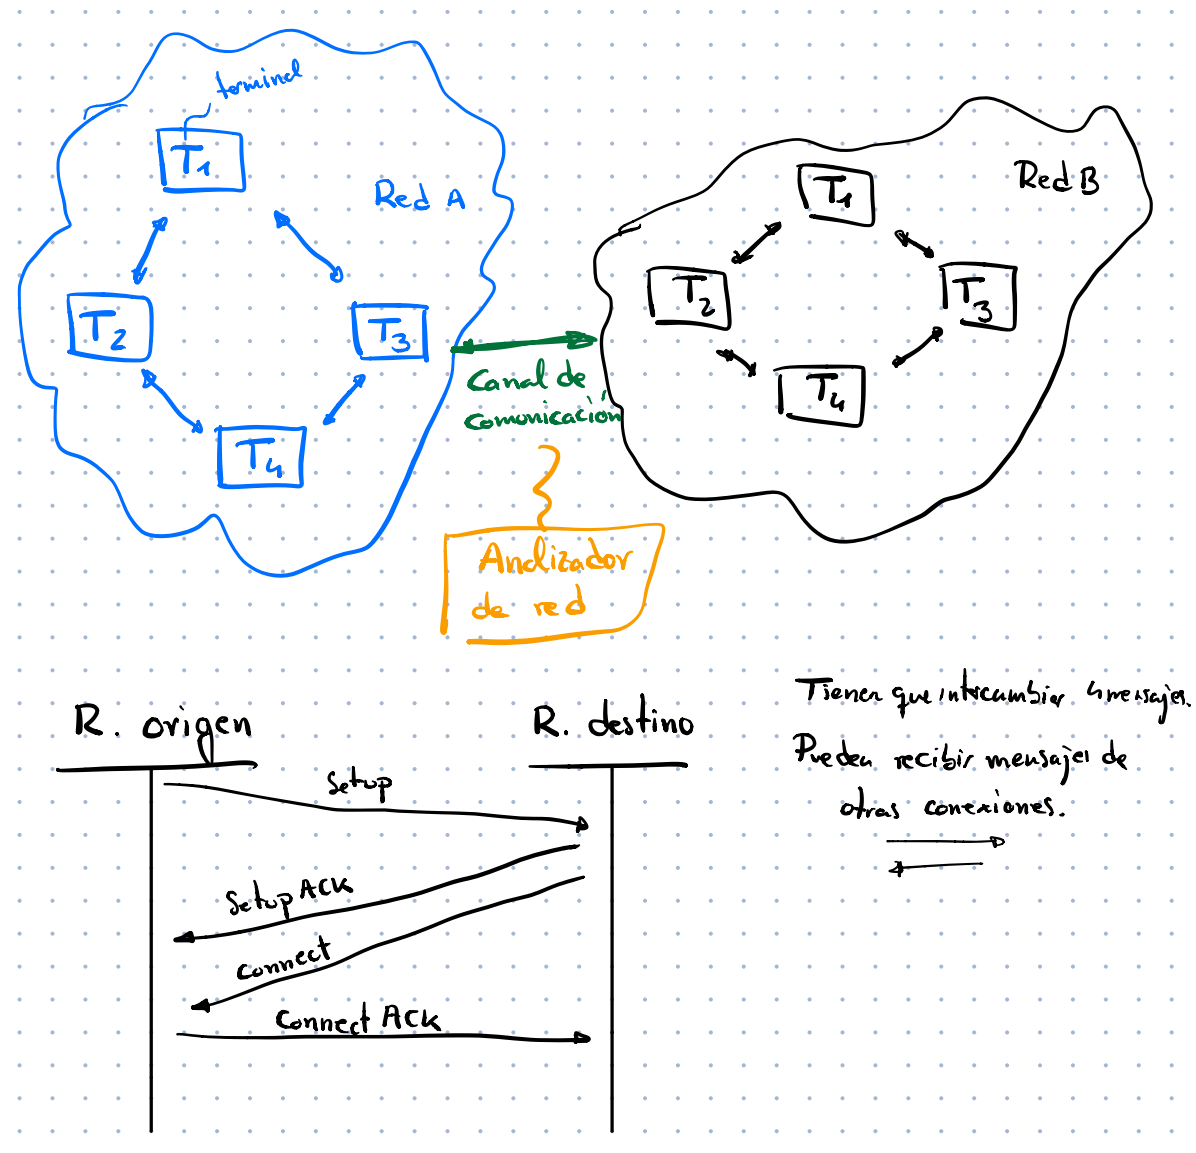 terminal
T1
Red A
T2
T3
T4
Red B
T1
T2
T3
T4
Canal de
comunicación
Analizador
de red
R. origen
R. destino
Setup
Setup ACK
Connect
Connect ACK
Tienen que intercambiar 4 mensajes.
Pueden recibir mensajes de
otras conexiones.